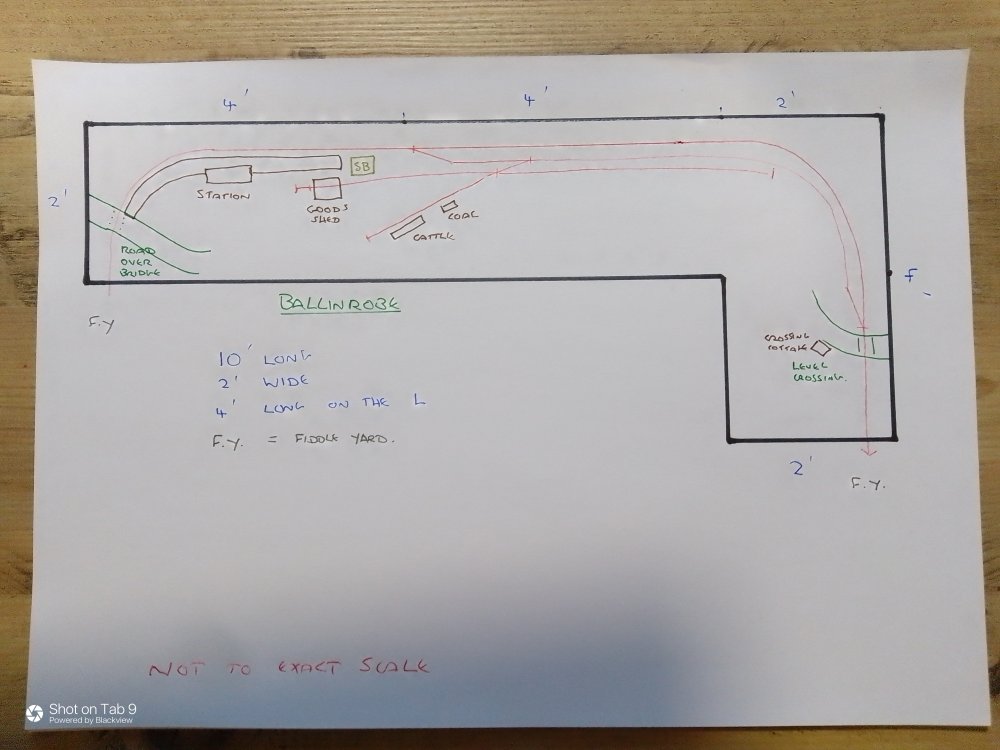 4'
4'
2'
2'
SB
STATION
GOODS
SHED
COAL
CATTLE
ROAD
OVER
BRIDGE
F.Y
BALLINROBE
10' LONG
2' WIDE
4' LONG ON THE L
F.Y. = FIDDLE YARD.
CROSSING
COTTAGE
LEVEL
CROSSING.
2'
F.Y.
NOT TO EXACT SCALE
Shot on Tab 9
Powered by Blackview